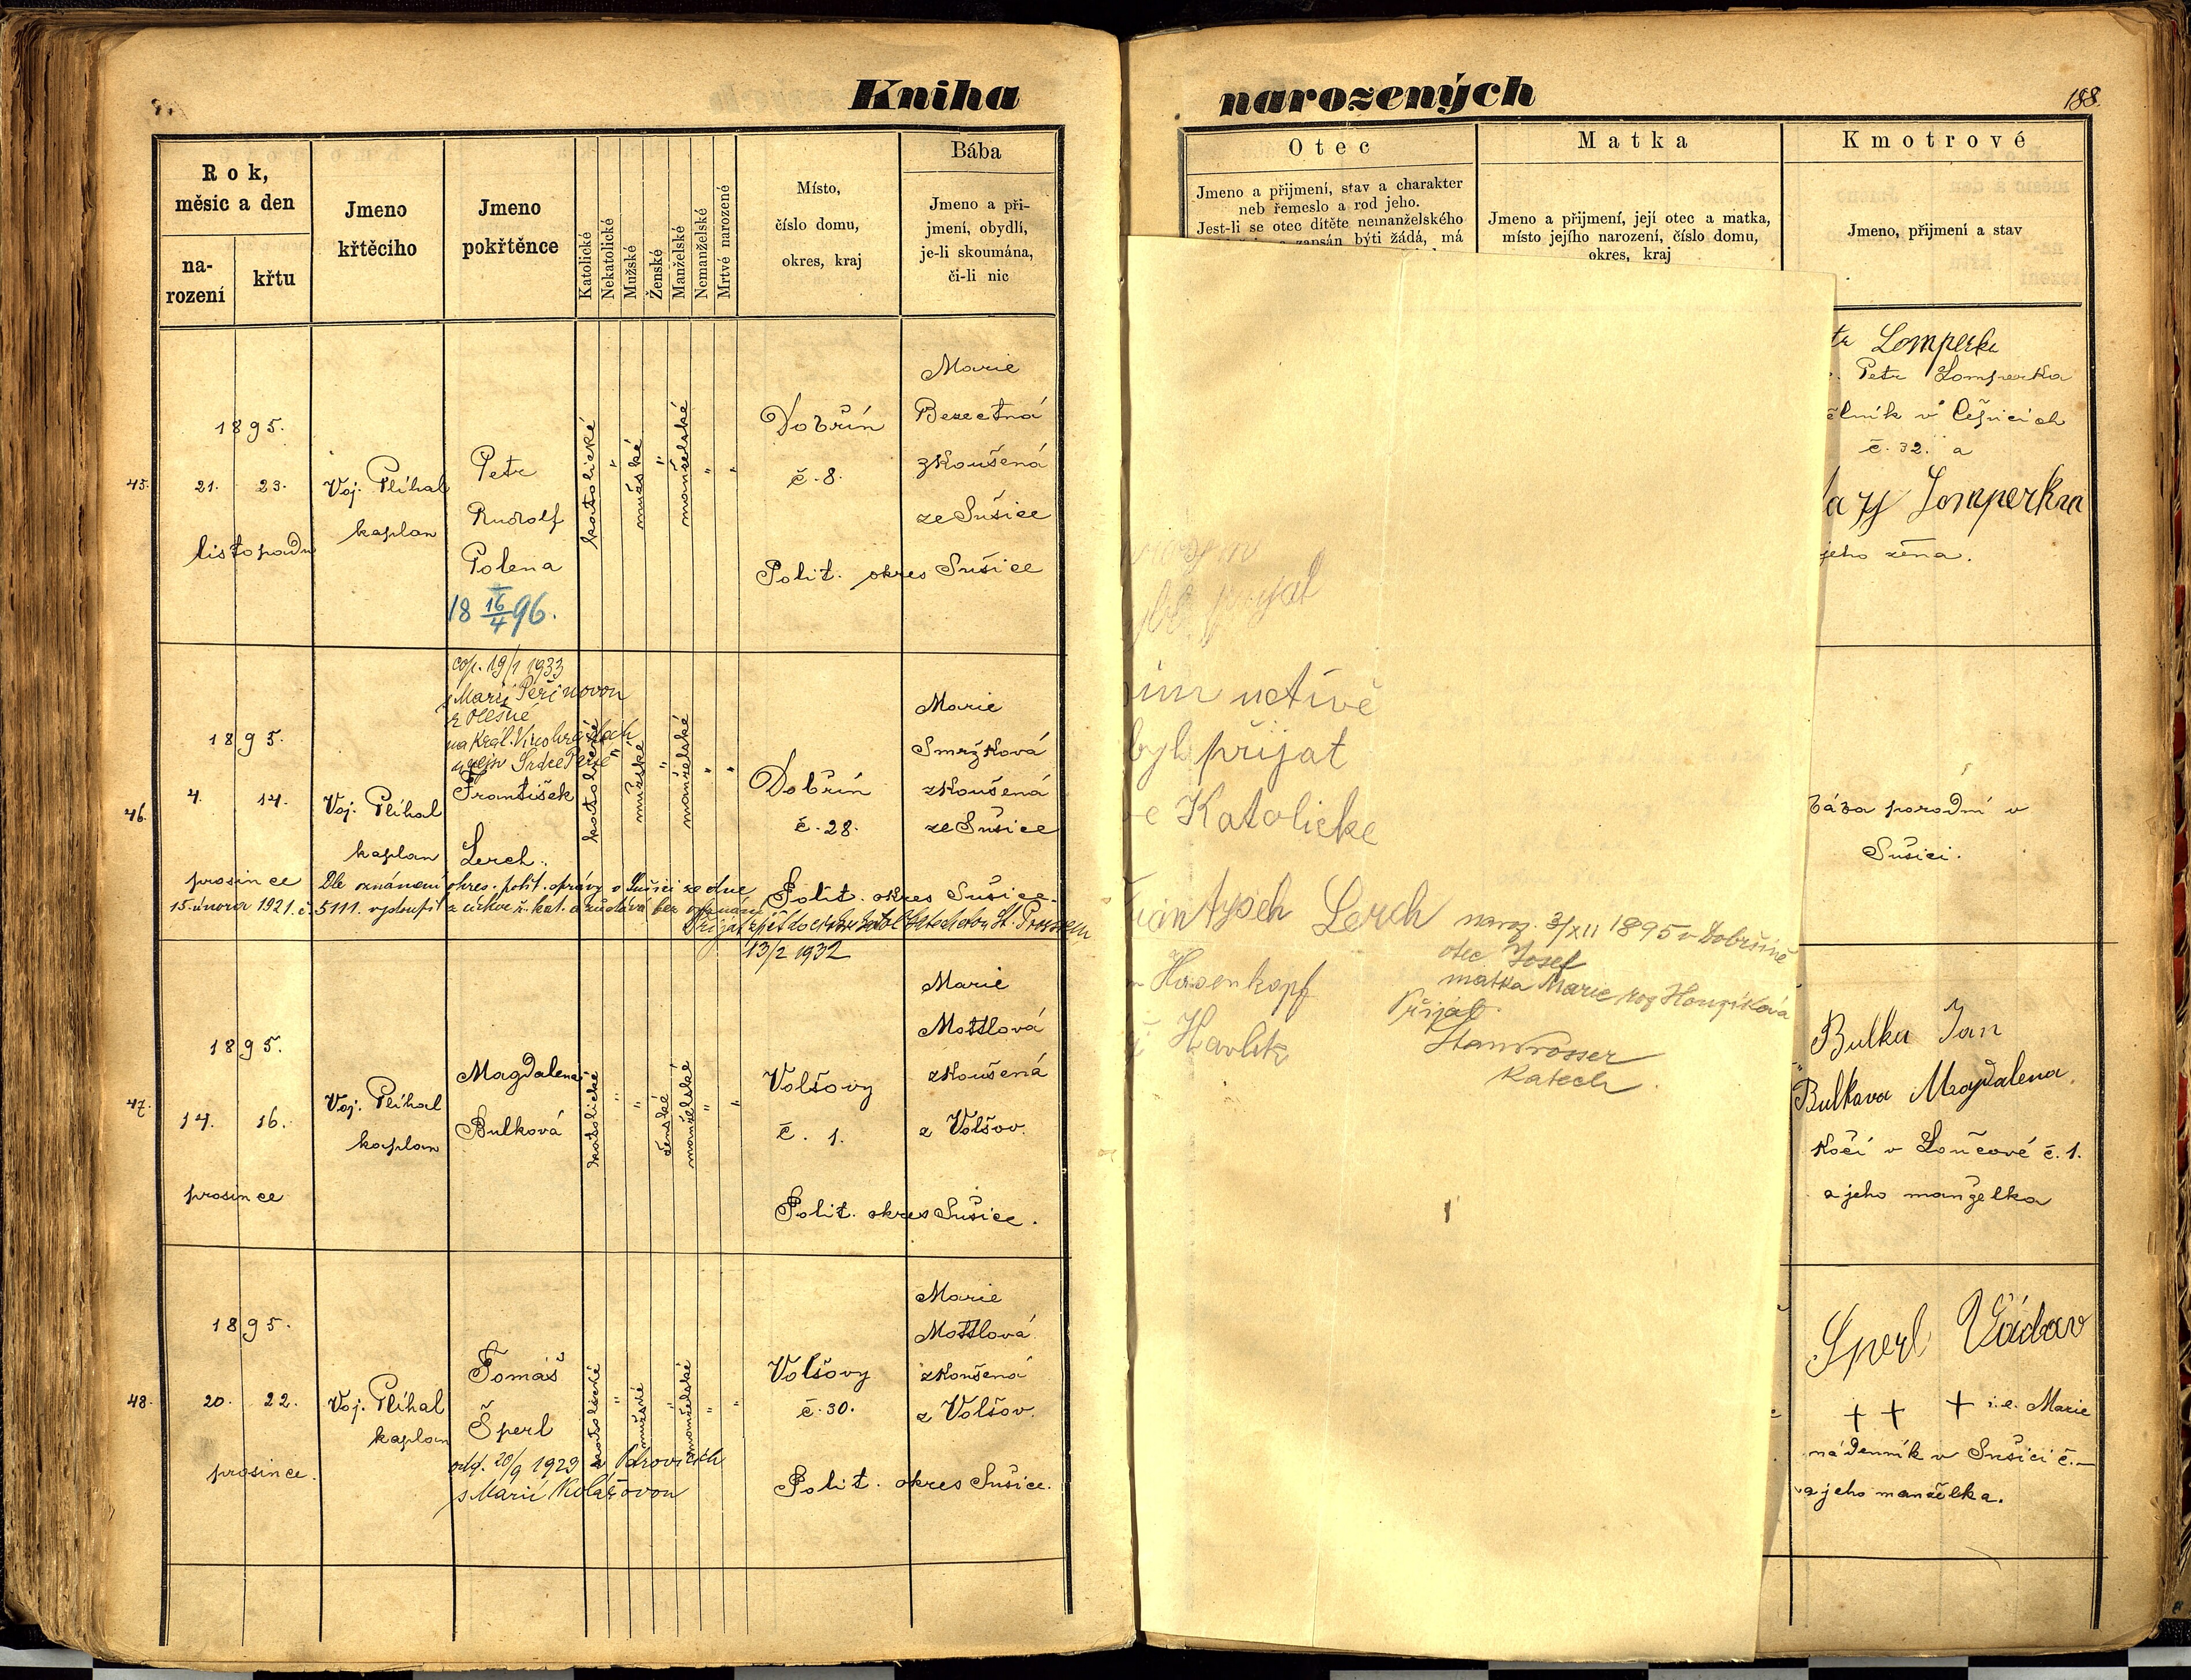 Kniha
Rok,
měsic a den
na-
rození
křtu
Jmeno
křtěciho
Jmeno
pokřtěnce
Katolické
Nekatolické
Mužské
Ženské
Manželské
Nemanželské
Mrtvé narozené
Místo,
číslo domu,
okres, kraj
Bába
Jmeno a při-
jmení, obydlí,
je-li skoumána,
či-li nic
45.
1895.
21. 23.
listopadu
Voj. Plíhal
kaplan
Petr
Rudolf
Polena
18 16/4 96.
katolické
"
mužské
"
manželské
"
"
Dobřín
č. 8.
Polit. okres Sušice
Marie
Bezectná
zkoušená
ze Sušice
46.
1895.
4. 14.
prosince
Voj. Plíhal
kaplan
cop. 19/1 1933
s Marií Peřinovou
z Olešné
na Král. Vinohradech
František
Lerch.
katolické
"
mužské
"
manželské
"
"
Dobřín
č. 28.
Polit. okres Sušice.
Marie
Smržková
zkoušená
ze Sušice
Dle oznámení okres. polit. správy v Sušici ze dne
15. února 1921. č. 5111. vystoupil z církve ř. kat. a zůstává bez vyznání
Přijat zpět do církve
13/2 1932
47.
1895.
14. 16.
prosince
Voj. Plíhal
kaplan
Magdalena
Bulková
katolické
"
"
ženské
manželské
"
"
Volšovy
č. 1.
Polit. okres Sušice.
Marie
Mottlová
zkoušená
z Volšov.
48.
1895.
20. 22.
prosince.
Voj. Plíhal
kaplan
Tomáš
Šperl
odd. 20/9 1929 v Petrovicích
s Marií Kolářovou
katolické
"
mužské
"
manželské
"
"
Volšovy
č. 30.
Polit. okres Sušice.
Marie
Mottlová
zkoušená
z Volšov.
narozených
188.
Otec
Jmeno a přijmení, stav a charakter
neb řemeslo a rod jeho.
Jest-li se otec dítěte nemanželského
zapsán býti žádá, má
Matka
Jmeno a přijmení, její otec a matka,
místo jejího narození, číslo domu,
okres, kraj
Kmotrové
Jmeno, přijmení a stav
tr Lomperka
Petr Lomperka
ělník v Čejnicích
č. 32. a
Lomperkaa
jeho žena.
přijat
uctívě
byl přijat
Katolicke
Lerch
naroz. 3/XII 1895 v Dobršině
otec Josef
matka Marie roz Houzíková
Přijal
Stan Prosser
Katech.
Hasenkopf
Havlík
bába porodní v
Sušici.
Bulka Jan
Bulkova Magdalena
Kočí v Loučové č. 1.
a jeho manželka
Šperl Václav
+ + + i. e. Marie
nádenník v Sušici č. –
a jeho manželka.